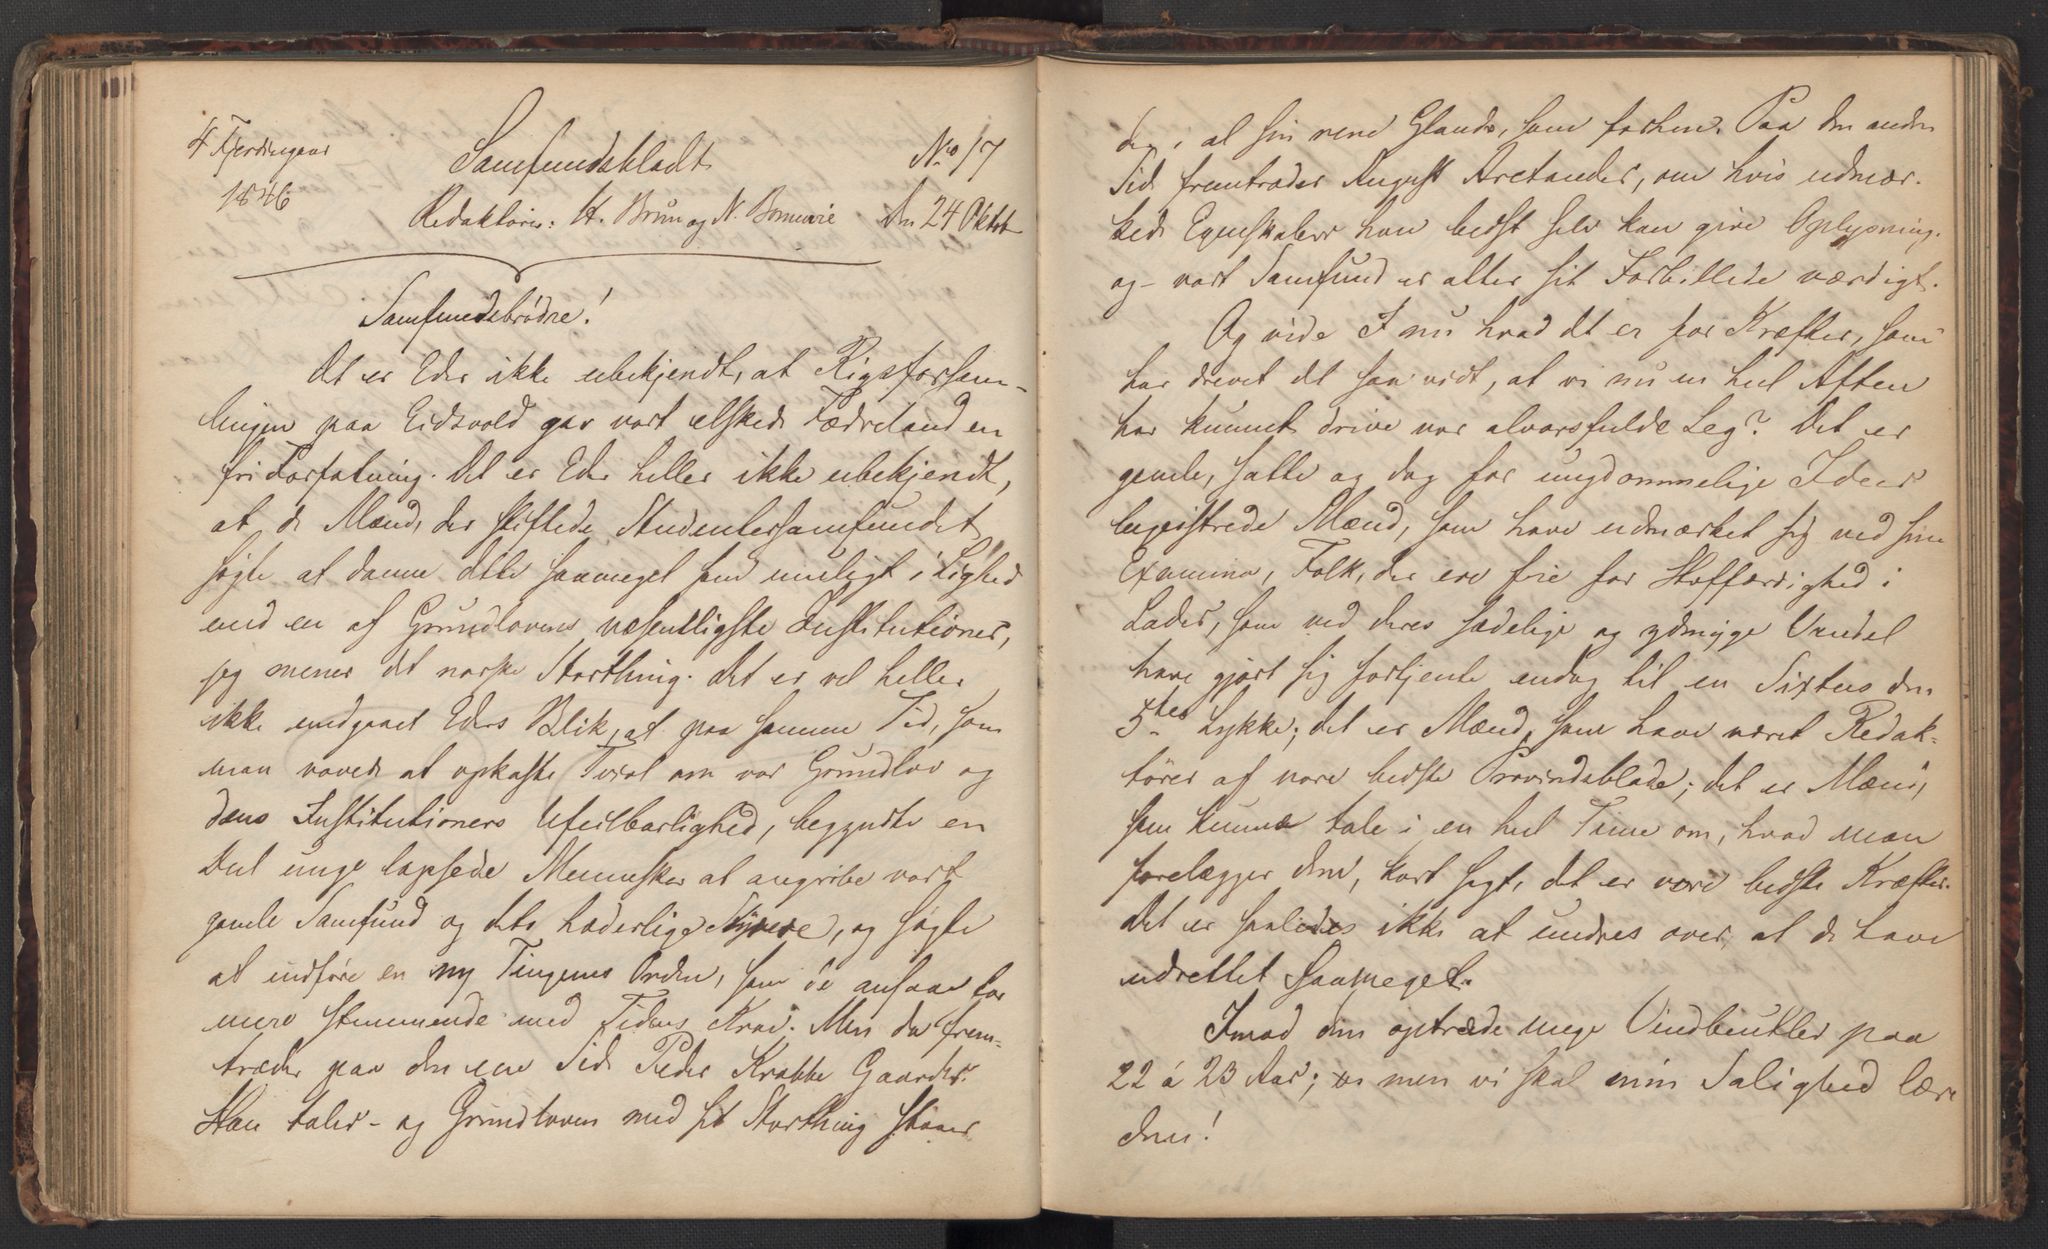 4 Fjerdingaar
1846
Samfundsbladt
No 17
Redaktører: H. Brun og N. Bonnevie
den 24 Oktob
Samfundsbrødre!
Det er Eder ikke ubekjendt, at Rigsforsam-
lingen paa Eidsvold gav vort elskede Fædreland en
fri Forfatning. Det er Eder heller ikke ubekjendt,
at de Mænd, der stiftede Studentersamfundet,
søgte at danne dette saameget som muligt i Lighed
med en af Grundlovens væsentligste Institutioner,
jeg mener det norske Storthing. Det er vel heller
ikke undgaaet Eders Blik, at paa samme Tid, som
man vovede at opkaste Tvivl om vor Grundlov og
dens Institutioners Ufeilbarlighed, begyndte en
Deel unge lapsede Mennesker at angribe vort
gamle Samfund og dets hæderlige Styrere, og søgte
at indføre en ny Tingenes Orden, som de ansaae for
mere stemmende med Tidens Krav. Men da frem-
træder paa den ene Side Peder Krabbe Gaarder.
Han taler - og Grundloven med sit Storthing staaer
der i al sin rene Glands, som forhen. Paa den anden
Side fremtræder August Arctander, om hvis udmær-
kede Egenskaber han bedst selv kan give Oplysning.
og - vort Samfund er atter sit Forbillede værdigt.
Og vide I nu hvad det er for Kræfter, som
har drevet det saa vidt, at vi nu en heel Aften
har kunnet drive vor alvorsfulde Leg? Det er
gamle, satte og dog for ungdommelige Ideer
begeistrede Mænd, som have udmærket sig ved sine
Examina, Folk, der ere frie for Hoffærdighed i
Lader, som ved deres sædelige og ydmyge Vandel
have gjort sig fortjente endog til en Sixtus den
5tes Lykke; det er Mænd, som have været Redak-
tører af vore bedste Provindsblade; det er Mænd,
som kunne tale i en heel Time om, hvad man
forelægger dem, kort sagt, det er vore bedste Kræfter.
Det er saaledes ikke at undres over, at de have
udrettet saameget.
Imod dem optræde unge Vindbeutler paa
22 á 23 Aar; men vi skal min Salighed lære
dem!